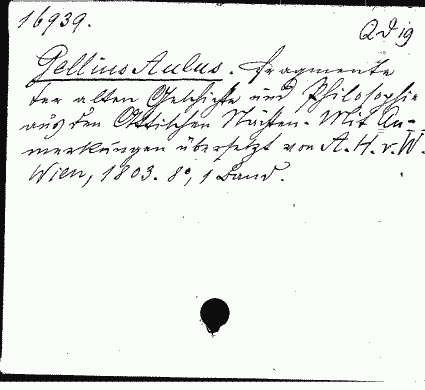 16939.
Q d 19
Gellius Aulus. Fragmente
der alten Geschichte und Philosophie
aus den Attischen Nächten. Mit An-
merkungen übersetzt von A. H. v. W.
Wien, 1803. 8°, 1 Band.